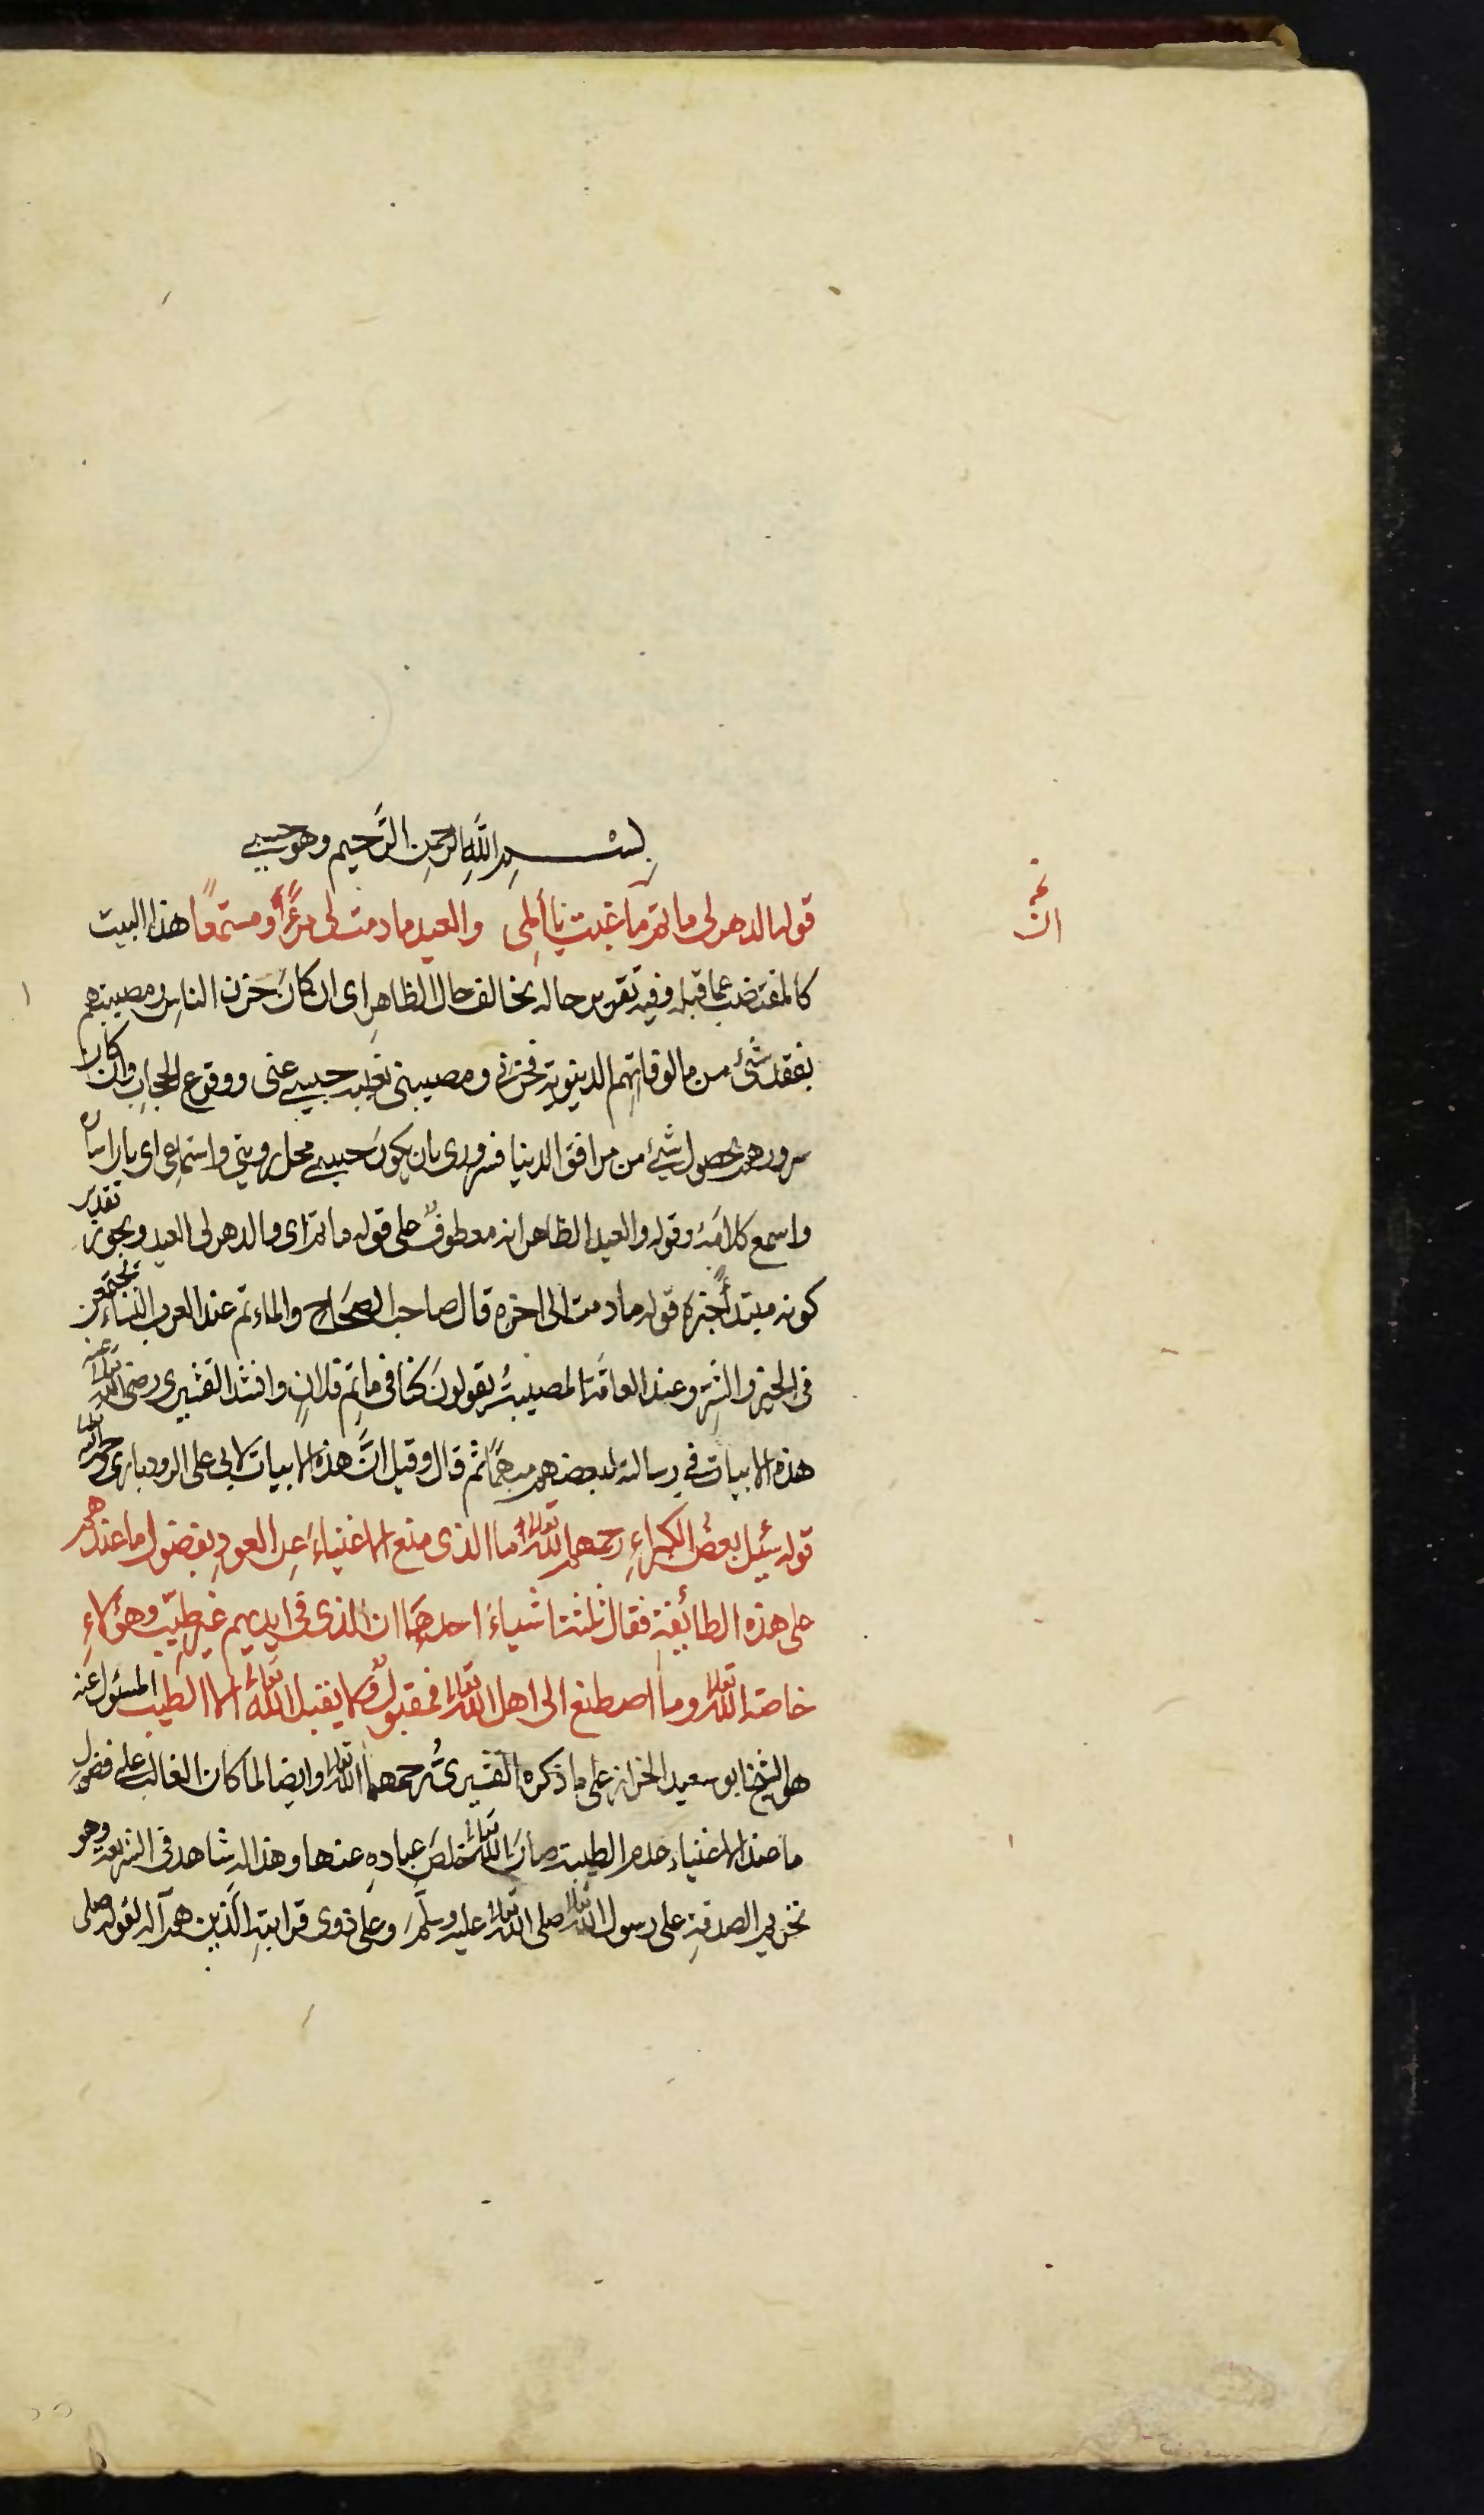 بسم اللّٰه الرحمن الرَّحيم وهو حسبي
قوله الدهر لى ماتم ما غبت يا أملى والعيد ما دمت لى مرءًا ومستمعًا هذا البيت
كالمقتضب عما قبله وفيه تقوير حاله بخالف حال الظاهر اى ان كان حزن الناس ومصيبتهم
بفقد شئ من مالوفاتهم الدينوية فحزنى ومصيبتى تغيب حبيبى عنى ووقوع الحجاب وان كان
سرورهم بحصول شئ من مرافق الدينا فسرورى بان يكون حبيبى محل رويتى واستماعى اى بان اراه
واسمع كلامه وقوله والعيد الظاهر انه معطوف على قوله ماتم اى والدهر لى العيد ويجوز تقدير
كونه مبتدأ خبره قوله ما دمت الى اخره قال صاحب الصحاح والماءتم عند العرب النساء تجتمعن
فى الخير والشر وعند العامّة المصيبة يقولون كنا فى ماتم فلان وانشد القشيرى رضى اللّٰه تعالى عنه
هذه الابيات فى رسالته لبعضهم مبهمًا ثم قال وقيل انَّ هذه الابيات لابى على الرودبارى رحمه اللّٰه تعالى
قوله سئيل بعض الكبراءِ رحمهم اللّٰه تعالى ما الذى منع الاغنياءَ عن العود بفضول ما عندهم
على هذه الطائفة فقال ثلثة اشياءَ احدها ان الذى فى ايديهم غير طيّب وهؤلاءِ
خاصة اللّٰه تعالى وما اصطنع الى اهل اللّٰه تعالى فمقبولٌ ولا يقبل اللّٰه تعالى الا الطيب المسئول عنه
هو الشيخ ابو سعيد الخراز على ما ذكره القشيرىُّ رحمهما اللّٰه تعالى وايضا لما كان الغالب على فضول
ما عند الاغنياء عدم الطيبة صانَ اللّٰه تعالى خلصَ عبادهِ عنها وهذا له شاهد فى الشريعة وهو
تحريم الصدقة على رسول اللّٰه تعالى صلى اللّٰه تعالى عليه وسلَّم وعلى ذوى قرابته الذين هم آله لقوله صلى